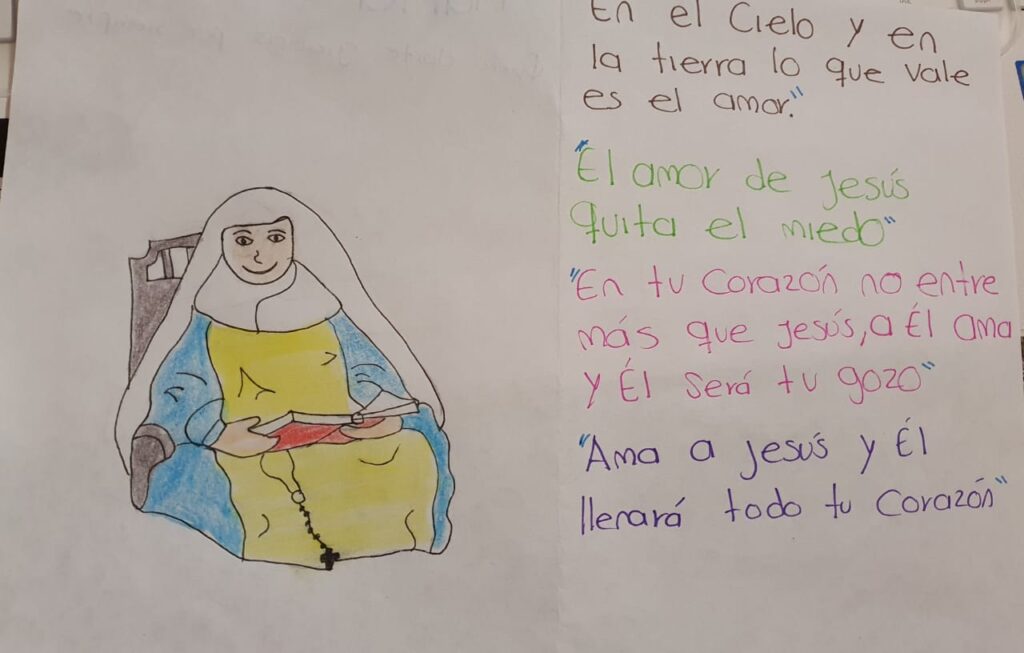 En el Cielo y en
la tierra lo que vale
es el amor."
"El amor de Jesús
quita el miedo"
"En tu Corazón no entre
más que Jesús, a Él ama
y Él Será tu gozo"
"Ama a Jesús y Él
llenará todo tu Corazón"